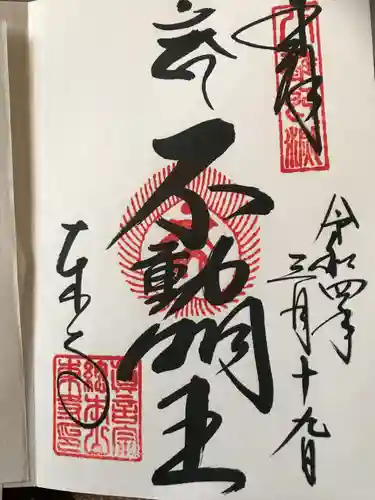 奉拝
令和四年
三月十九日
不動明王
東寺